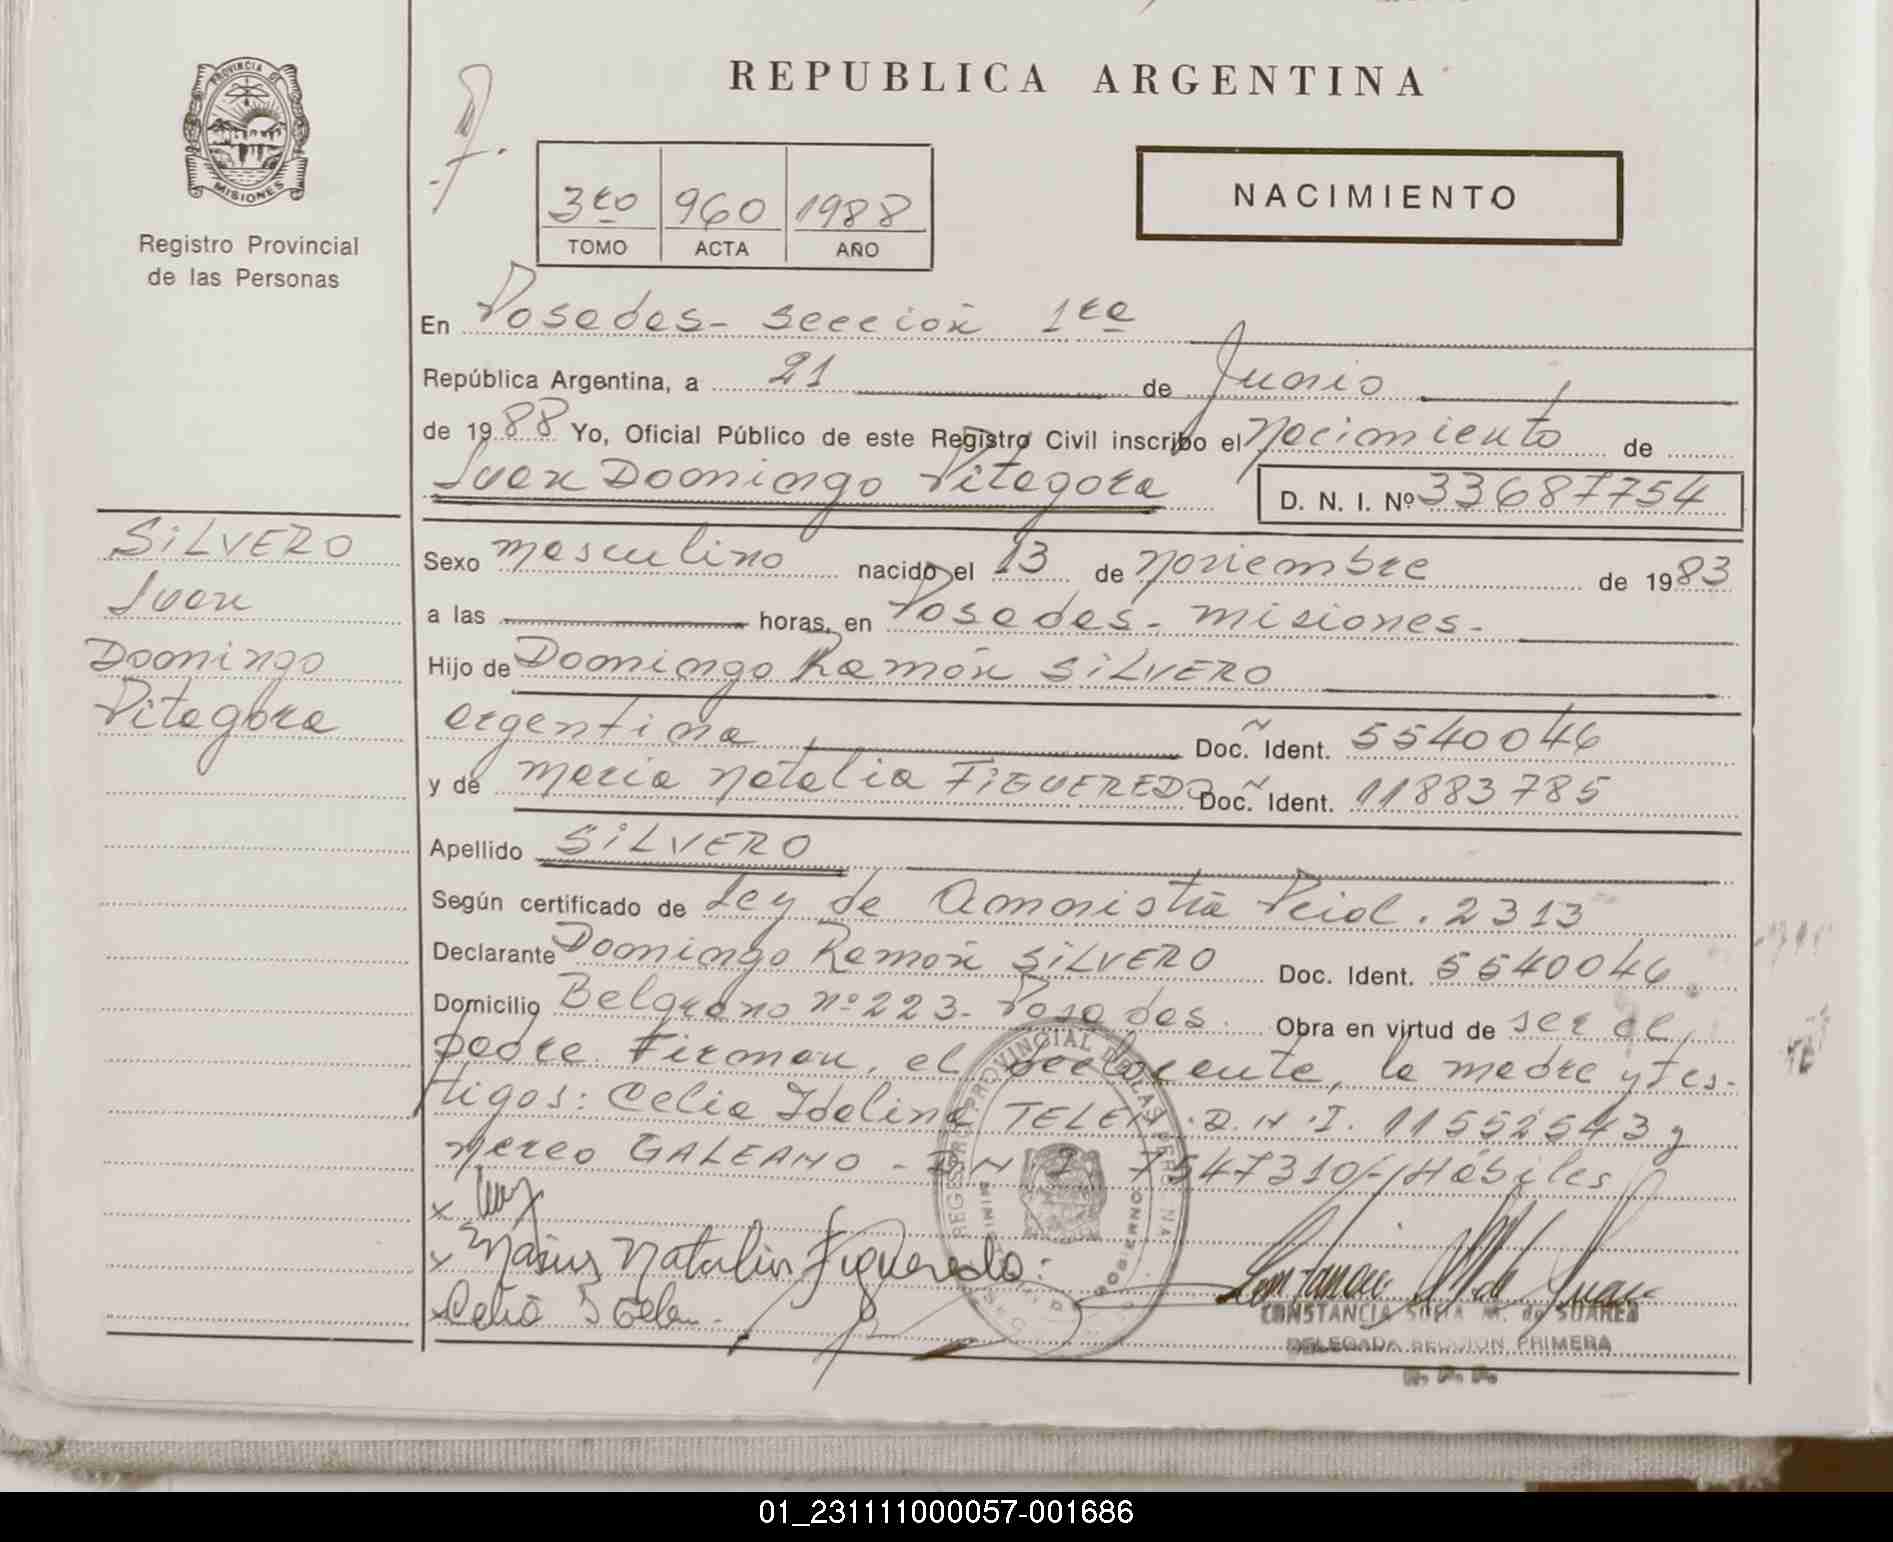 REPUBLICA ARGENTINA
PROVINCIA DE
MISIONES
Registro Provincial
de las Personas
3ro 960 1988
TOMO ACTA AÑO
NACIMIENTO
En Posadas - sección 1ra
República Argentina, a 21 de Junio
de 1988 Yo, Oficial Público de este Registro Civil inscribo el nacimiento de
Juan Domingo Pitagora D. N. I. Nº 33687754
SILVERO
Juan
Domingo
Pitagora
Sexo masculino nacido el 13 de noviembre de 1983
a las horas, en Posadas - misiones -
Hijo de Domingo Ramón SILVERO
argentina Doc. Ident. 5540046
y de Maria Natalia FIGUEREDO Doc. Ident. 11883785
Apellido SILVERO
Según certificado de Ley de Amnistia Pcial. 2313
Declarante Domingo Ramón SILVERO Doc. Ident. 5540046
Domicilio Belgrano nº 223 - Posadas. Obra en virtud de ser el
padre. Firman, el declarante, la madre y tes-
tigos: Celia Idalina TELEN. D.N.I. 11552543 y
Nereo GALEANO - D.N.I. 7547310 - Hábiles
x
x Maria Natalia Figueredo.
x Celia
CONSTANCIA SOFIA M. de SUAREZ
DELEGADA SECCION PRIMERA
R. P. P.
01_231111000057-001686